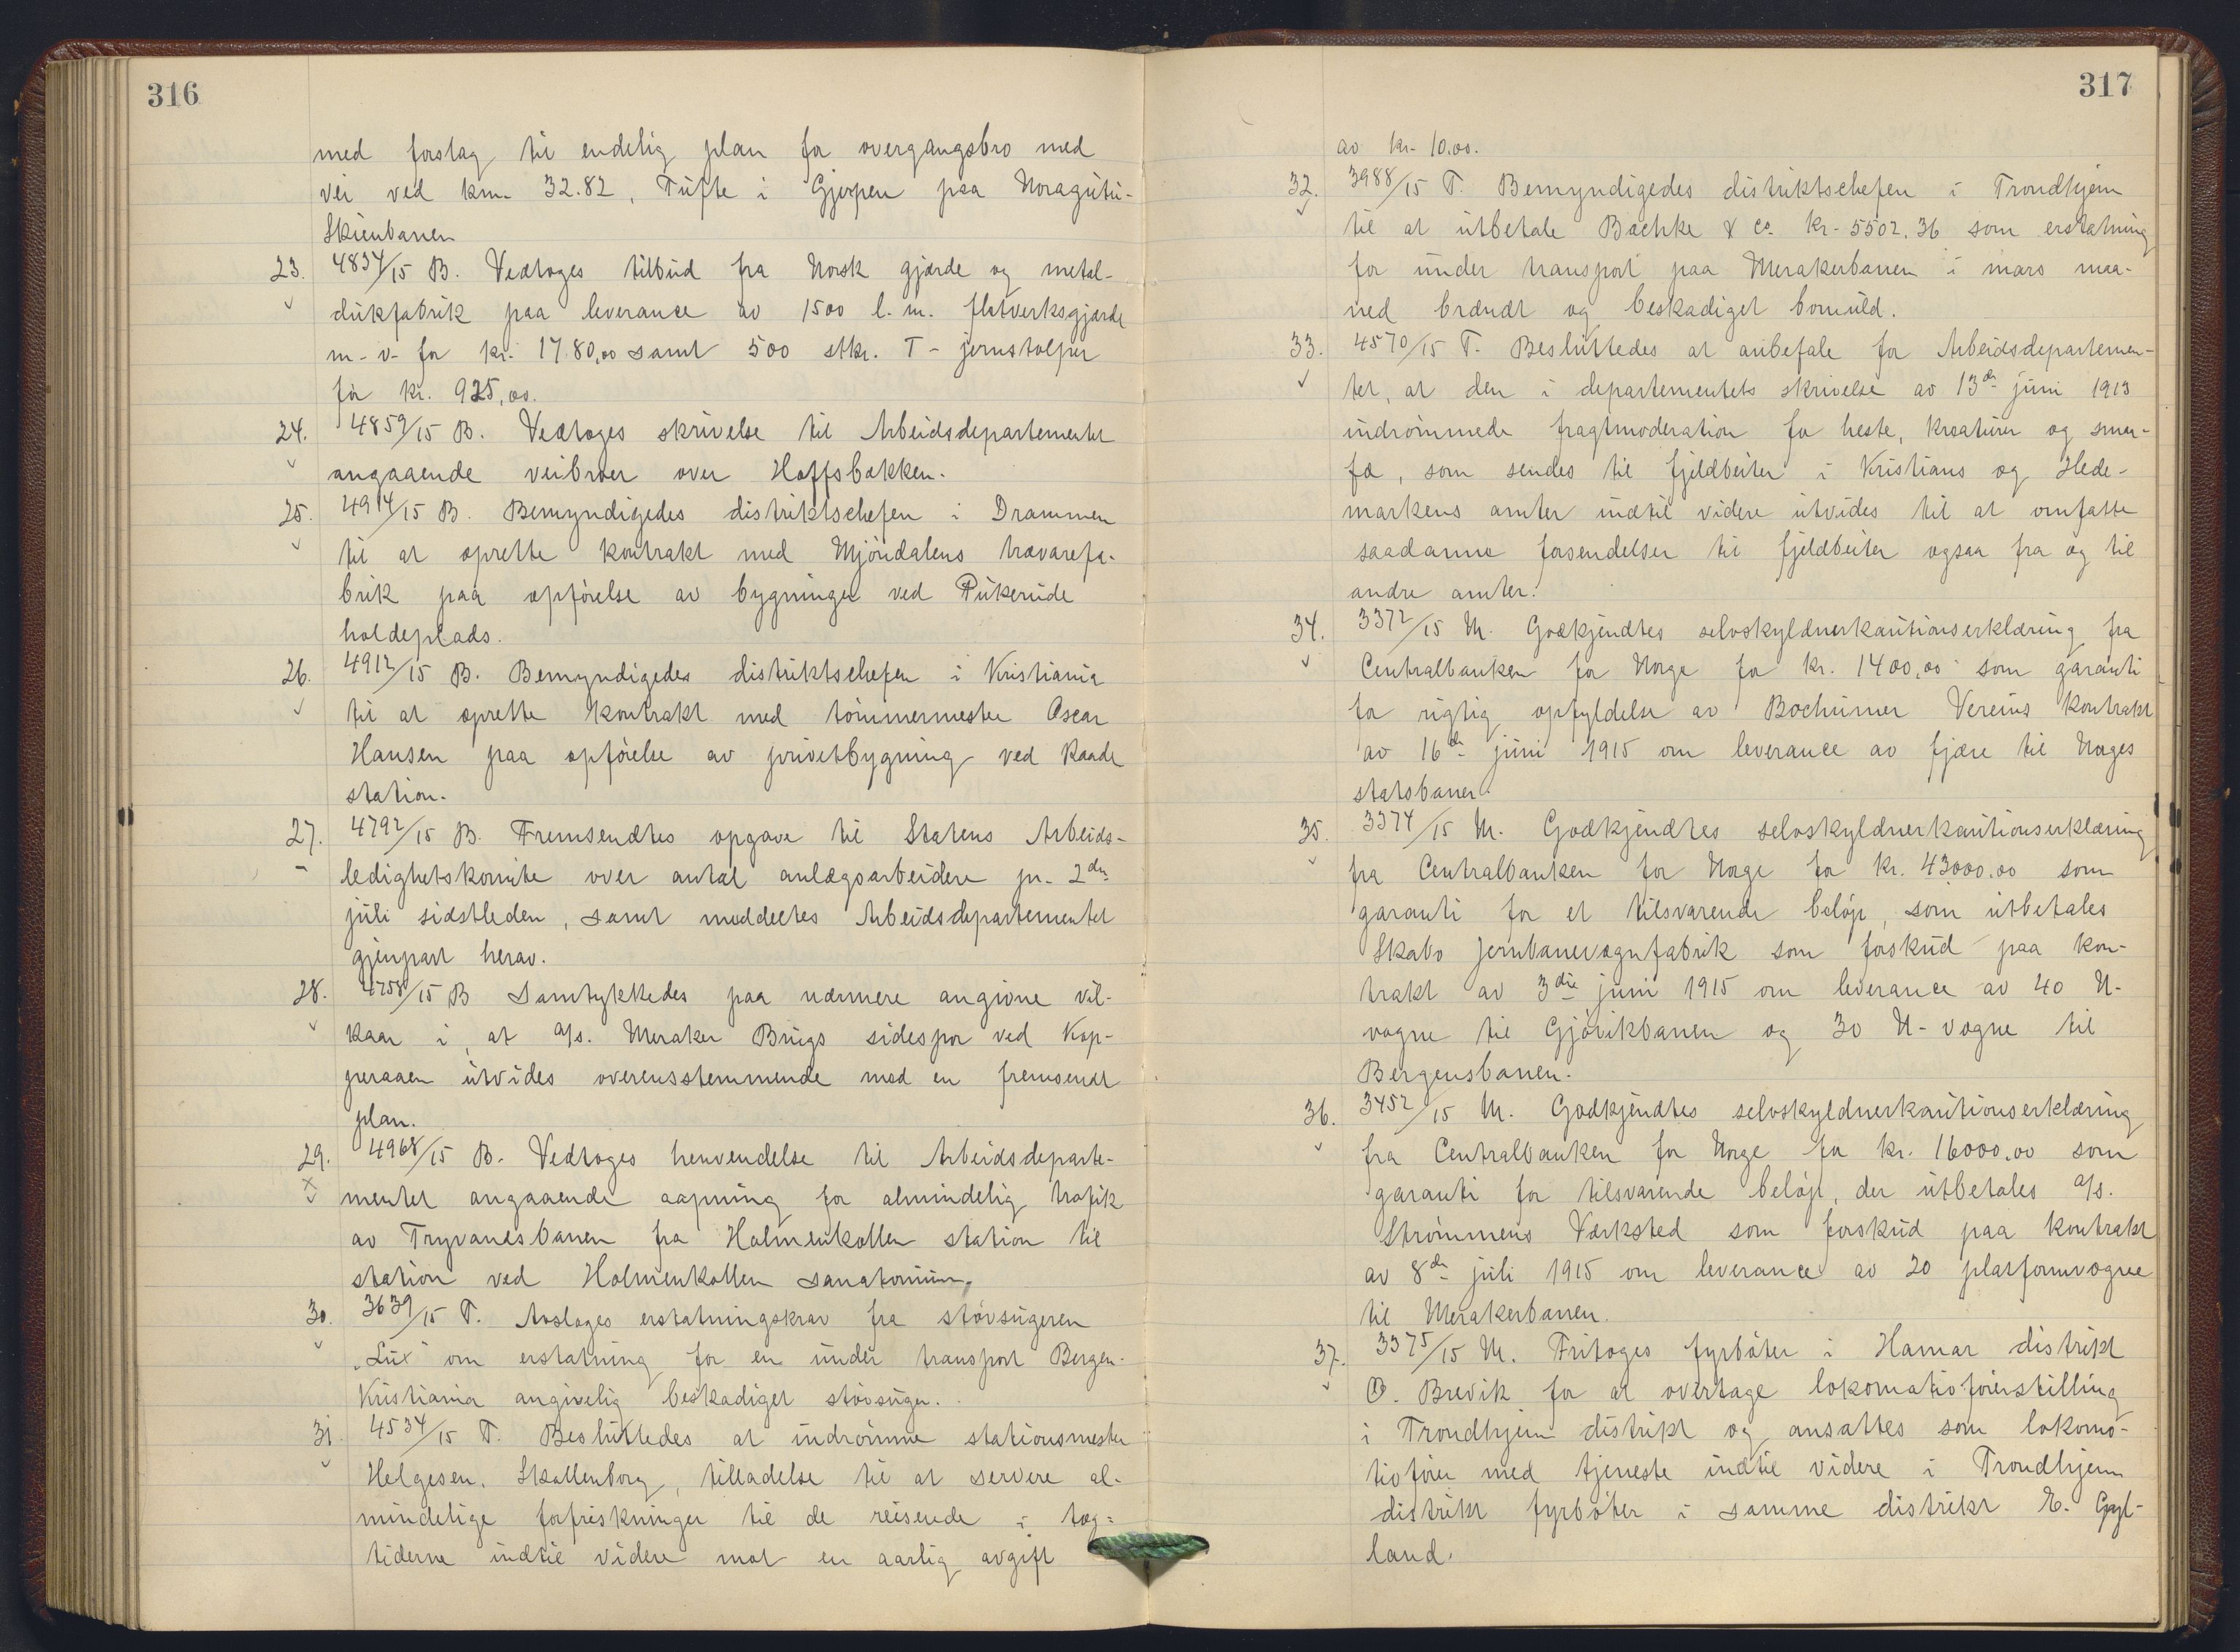 316
med forslag til endelig plan for overgangsbro med
vei ved km. 32.82, Tufte i Gjerpen paa Noragutu-
Skienbanen
23. 4834/15 B. Vedtoges tilbud fra Norsk gjærde og metal-
dukfabrik paa leverance av 1500 l.m. flatverksgjærde
m-v- for kr. 1780,00 samt 500 stkr. T-jernstolper
for kr. 925,00.
24. 4859/15 B. Vedtoges skrivelse til Arbeidsdepartementet
angaaende veibroer over Hoffsbakken.
25. 4914/15 B. Bemyndigedes distriktschefen i Drammen
til at oprette kontrakt med Mjöndalens trævarefa-
brik paa opförelse av bygninger ved Pukerude
holdeplads.
26. 4912/15 B. Bemyndigedes distriktschefen i Kristiania
til at oprette kontrakt med tömmermester Oscar
Hansen paa opförelse av privetbygning ved Raade
station.
27. 4792/15 B. Fremsendtes opgave til Statens Arbeids-
ledighetskomite over antal anlægsarbeidere pr. 2den
juli sidstleden, samt meddeltes Arbeidsdepartementet
gjenpart herav.
28. 4758/15 B Samtykkedes paa nærmere angivne vil-
kaar i, at A/s. Meraker Brugs sidespor ved Kop-
peraaen utvides overensstemmende med en fremsendt
plan.
29. 4968/15 B. Vedtoges henvendelse til Arbeidsdeparte-
mentet angaaende aapning for almindelig trafik
av Tryvandsbanen fra Holmenkollen station til
station ved Holmenkollen sanatorium.
30. 3639/15 T. Avsloges erstatningskrav fra stövsugeren
"Lux" om erstatning for en under transport Bergen-
Kristiania angivelig beskadiget stövsuger.
31. 4534/15 T. Besluttedes at indrömme stationsmester
Helgesen, Skollenborg, tilladelse til at servere al-
mindelige forfriskninger til de reisende i tog-
tiderne indtil videre mot en aarlig avgift
317
av kr. 10.00.
32. 3988/15 T. Bemyndigedes distriktschefen i Trondhjem
til at utbetale Bachke & Co kr. 5502.36 som erstatning
for under transport paa Merakerbanen i mars maa-
ned brændt og beskadiget bomuld.
33. 4570/15 T. Besluttedes at anbefale for Arbeidsdepartemen-
tet, at den i departementets skrivelse av 13de juni 1913
indrömmede fragtmoderation for heste, kreaturer og smaa-
fæ, som sendes til fjeldbeiter i Kristians og Hede-
markens amter indtil videre utvides til at omfatte
saadanne forsendelser til fjeldbeiter ogsaa fra og til
andre amter.
34. 3372/15 M. Godkjendtes selvskyldnerkautionserklæring fra
Centralbanken for Norge for kr. 1400,00 som garanti
for rigtig opfyldelse av Bochumer Vereins kontrakt
av 16de juni 1915 om leverance av fjære til Norges
statsbaner.
35. 3374/15 M. Godkjendtes selvskyldnerkautionserklæring
fra Centralbanken for Norge for kr. 43000.00 som
garanti for et tilsvarende belöp, som utbetales
Skabo Jernbanevognfabrik som forskud paa kon-
trakt av 3die juni 1915 om leverance av 40 N-
vogne til Gjövikbanen og 30 N-vogne til
Bergensbanen.
36. 3452/15 M. Godkjendtes selvskyldnerkautionserklæring
fra Centralbanken for Norge for kr. 16000.00 som
garanti for tilsvarende belöp, der utbetales A/s.
Strömmens Værksted som forskud paa kontrakt
av 8de juli 1915 om leverance av 20 platformvogne
til Merakerbanen.
37. 3375/15 M. Fritoges fyrböter i Hamar distrikt
O. Brevik for at overtage lokomotivförerstilling
i Trondhjem distrikt og ansattes som lokomo-
tivförer med tjeneste indtil videre i Trondhjem
distrikt fyrböter i samme distrikt E. Gyl-
land.